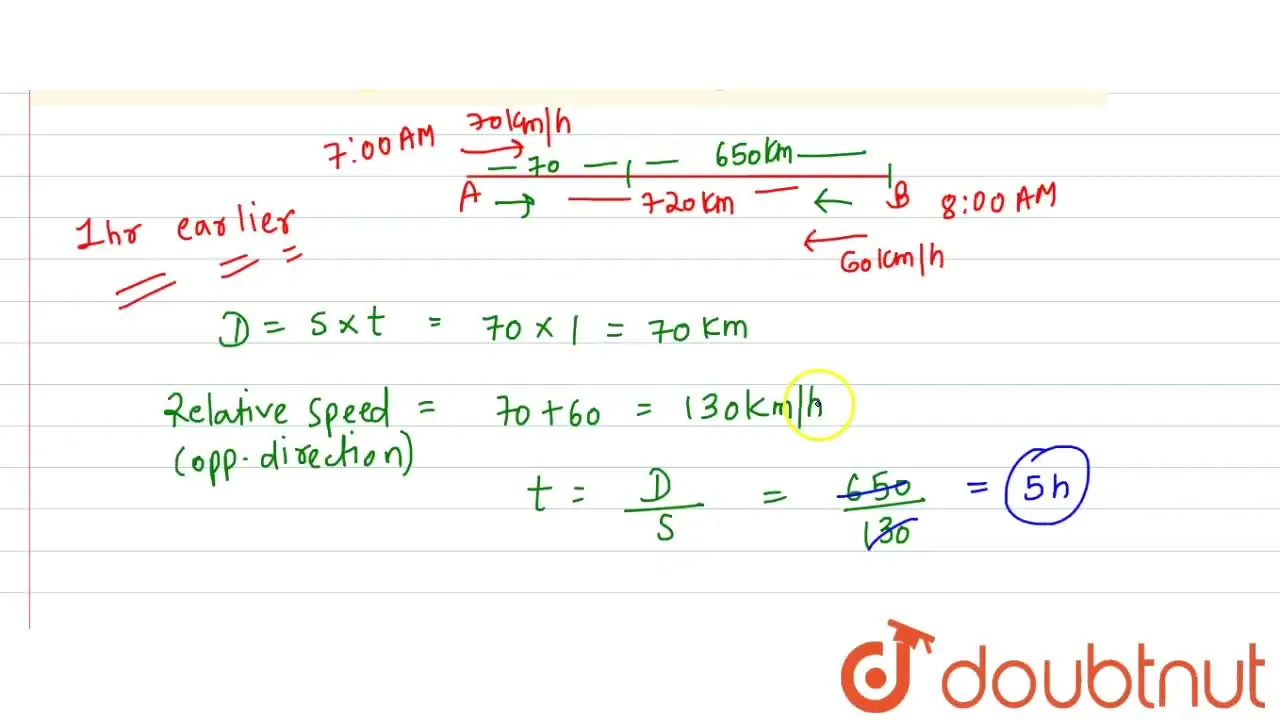 7:00 AM 70km/h
70 650km
A 720km B 8:00 AM
60km/h
1hr earlier
D = S × t = 70 × 1 = 70 Km
Relative speed = 70 + 60 = 130km/h
(opp. direction)
t = D/S = 650/130 = 5h
doubtnut